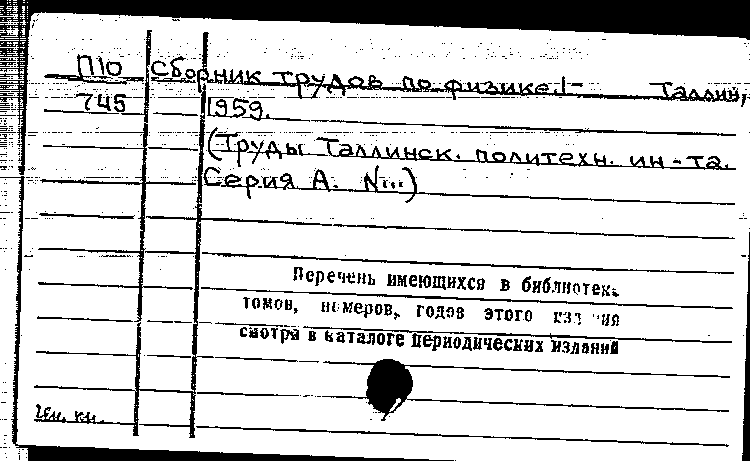 П10 Сборник трудов по физике. 1- Таллин,
745 1959.
(Труды Таллинск. политехн. ин-та.
Серия А. N...)
Перечень имеющихся в библиотек.
томов, номеров, годов этого
смотри в каталоге периодических изданий